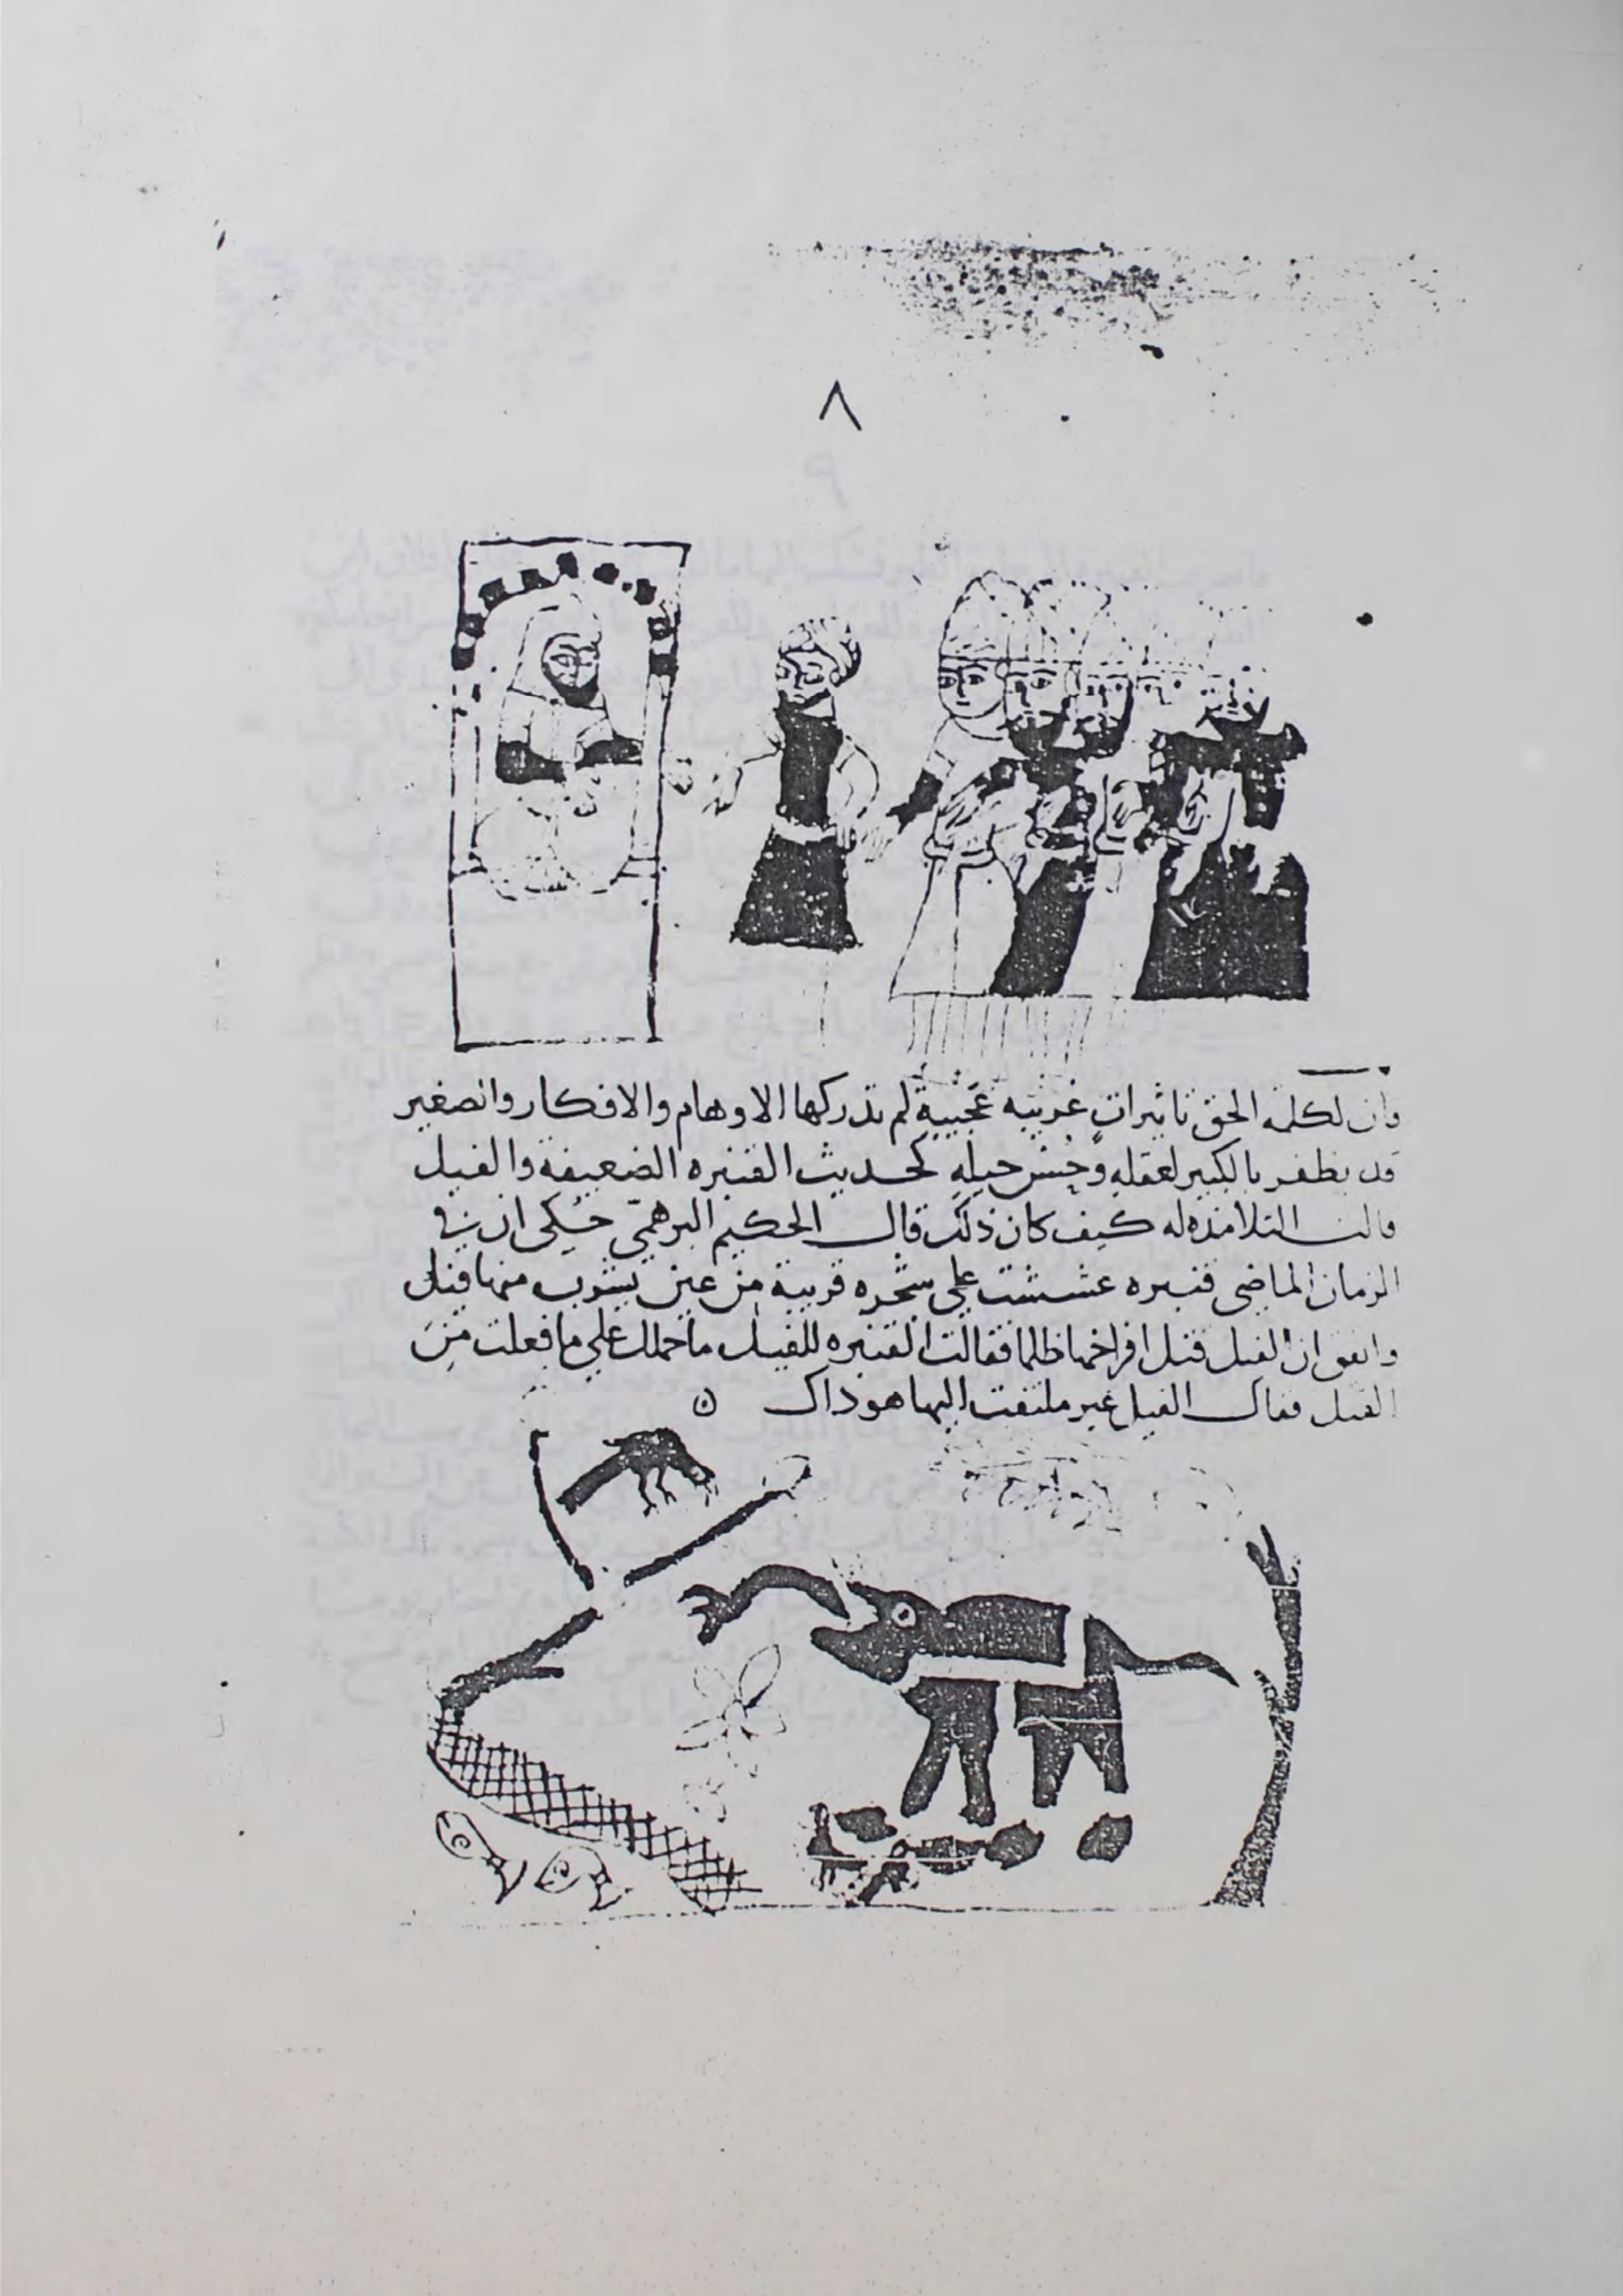 ٨
وان لكلمة الحق تاثيرات غريبه عجيبة لم تدركها الاوهام والافكار وانصغير
قد يظفر بالكبير لعقله وحسن حيله كحديث القنبره الضعيفة والفيل
قالت التلامذه له كيف كان ذلك قال الحكيم البرهمي حكى ان في
الزمان الماضي قنبره عششت على شجره قريبة من عين يشرب منها فيل
واتفق ان الفيل قتل افراخها ظلما فقالت القنبره للفيل ما حملك على ما فعلت من
القتل فقال الفيل غير ملتفت اليها هو ذاك ه